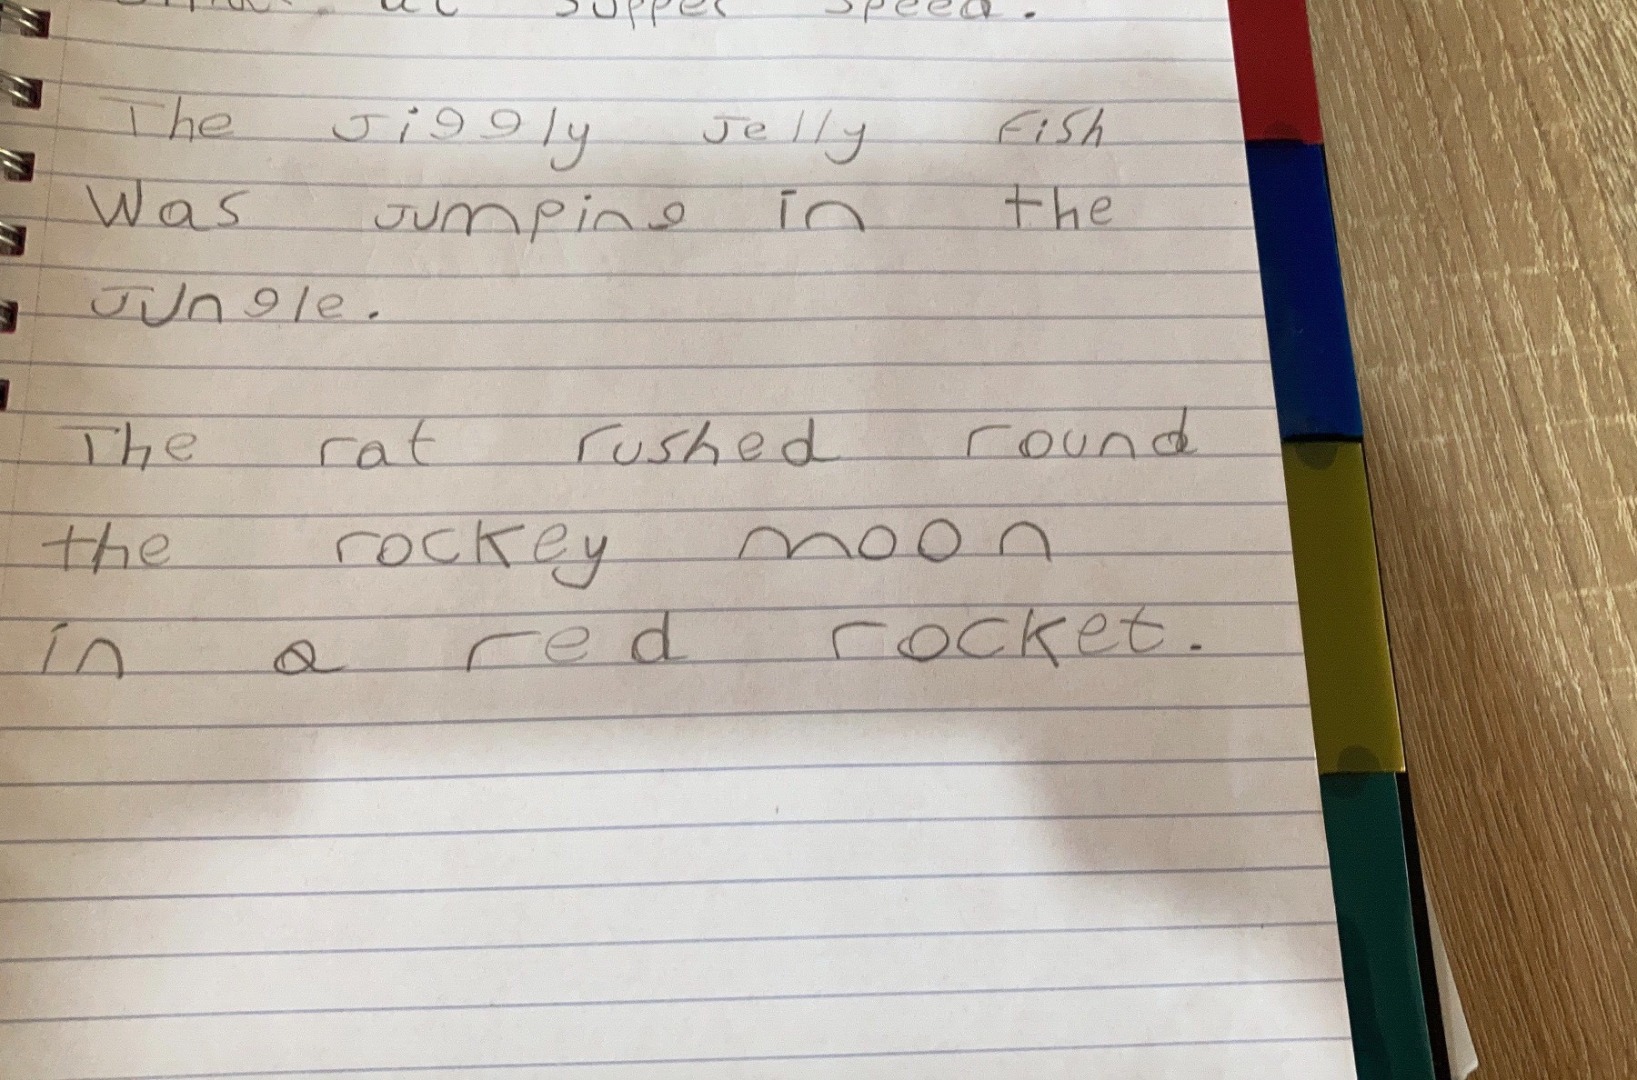 at supper speed.
The Jiggly Jelly Fish
Was Jumping in the
Jungle.
The rat rushed round
the rockey moon
in a red rocket.